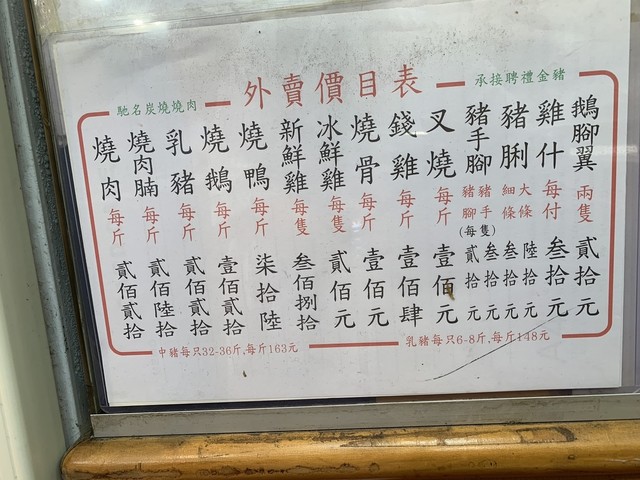 外賣價目表
馳名炭燒燒肉
承接聘禮金豬
鵝腳翼 兩隻 貳拾元
雞什 每付 叁拾元
豬脷 大條 陸拾元
細條 叁拾元
豬手腳 豬手 叁拾元
豬腳 貳拾元
(每隻)
叉燒 每斤 壹佰元
錢雞 每斤 壹佰肆
燒骨 每斤 壹佰元
冰鮮雞 每隻 貳佰元
新鮮雞 每隻 叁佰捌拾
燒鴨 每斤 柒拾陸
燒鵝 每斤 壹佰貳拾
乳豬 每斤 貳佰貳拾
燒肉腩 每斤 貳佰陸拾
燒肉 每斤 貳佰貳拾
中豬每只32-36斤,每斤163元
乳豬每只6-8斤,每斤148元